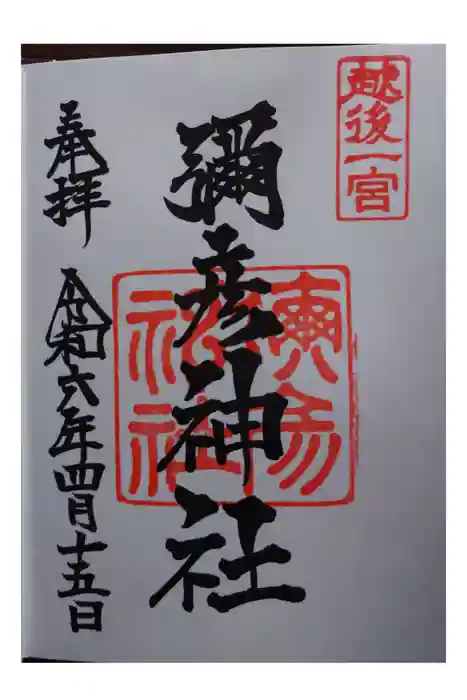 越後一宮
彌彦神社
奉拝
令和六年四月十五日